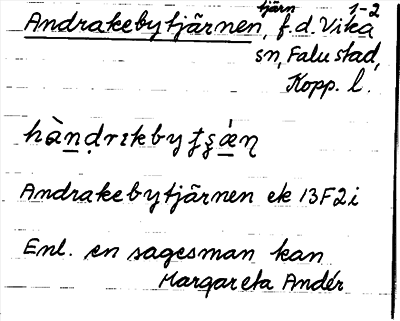 tjärn 1-2
Andrakebytjärnen, f.d. Vika
sn, Falu stad,
Kopp. l.
hàn̲ḍrɩkbytʂǽ̲ɳ
Andrakebytjärnen ek 13F2i
Enl. en sagesman kan
Margareta Andér